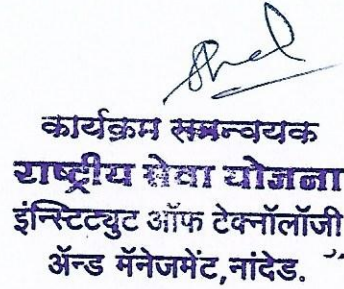 कार्यक्रम समन्वयक
राष्ट्रीय सेवा योजना
इन्स्टिटयुट ऑफ टेक्नॉलॉजी
ॲन्ड मॅनेजमेंट,नांदेड.